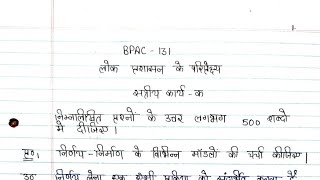 BPAC - 131
लोक प्रशासन के परिप्रेक्ष्य
सत्रीय कार्य - क
निम्नलिखित प्रश्नों के उत्तर लगभग 500 शब्दों
में दीजिए।
प्र०1. निर्णय-निर्माण के विभिन्न मॉडलों की चर्चा कीजिए।
उ० निर्णय लेना एक ऐसी प्रक्रिया को संदर्भित करता है